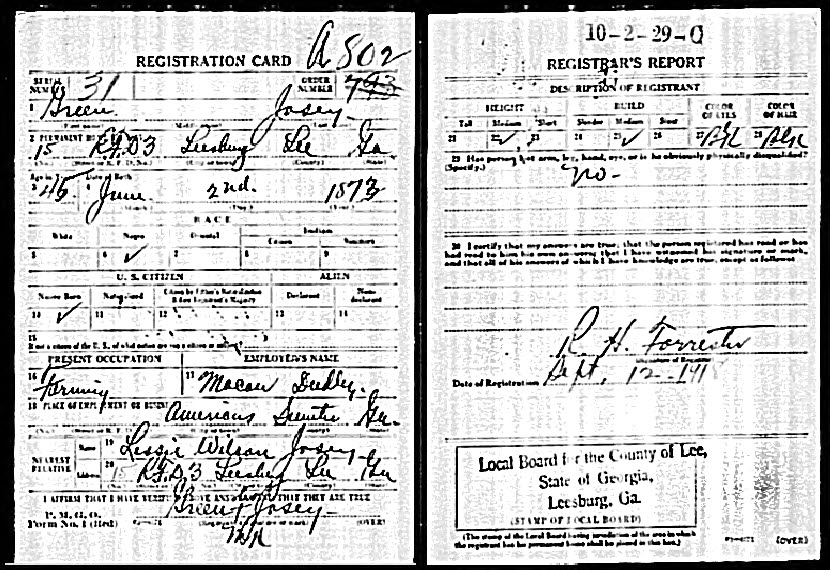 REGISTRATION CARD A 802
SERIAL NUMBER 31 ORDER NUMBER 793
1 Green Josey
2 PERMANENT HOME ADDRESS
15 R.F.D3 Leesburg Lee Ga
Age in Years Date of Birth
3 45 4 June 2nd. 1873
RACE
White Negro Oriental Indian
Citizen Noncitizen
5 6 ✓ 7 8 9
U. S. CITIZEN ALIEN
Native Born Naturalized Citizen by Father's Naturalization Before Registrant's Majority Declarant Non-declarant
10 ✓ 11 12 13 14
15
If not a citizen of the U. S., of what nation are you a citizen or subject?
PRESENT OCCUPATION EMPLOYER'S NAME
16 Farming 17 Macon Dudley
18 PLACE OF EMPLOYMENT OR BUSINESS
Americus Sumter Ga.
NEAREST RELATIVE Name 19 Lessie Wilson Josey
Address 20 15 R.F.D3 Leesburg Lee Ga
I AFFIRM THAT I HAVE VERIFIED ABOVE ANSWERS AND THAT THEY ARE TRUE
P. M. G. O.
Form No. 1 (Red) Green Josey (OVER)
10-2-29-C
REGISTRAR'S REPORT
DESCRIPTION OF REGISTRANT
HEIGHT BUILD COLOR OF EYES COLOR OF HAIR
Tall Medium Short Slender Medium Stout
21 22 ✓ 23 24 25 ✓ 26 27 Blk 28 Blk
29 Has person lost arm, leg, hand, eye, or is he obviously physically disqualified?
(Specify.)
no-
30 I certify that my answers are true; that the person registered has read or has
had read to him his own answers; that I have witnessed his signature or mark,
and that all of his answers of which I have knowledge are true, except as follows:
R. H. Forrester
(Signature of Registrar)
Date of Registration Sept, 12-1918
Local Board for the County of Lee,
State of Georgia,
Leesburg, Ga.
(STAMP OF LOCAL BOARD)
(The stamp of the Local Board having jurisdiction of the area in which
the registrant has his permanent home shall be placed in this box.)
(OVER)